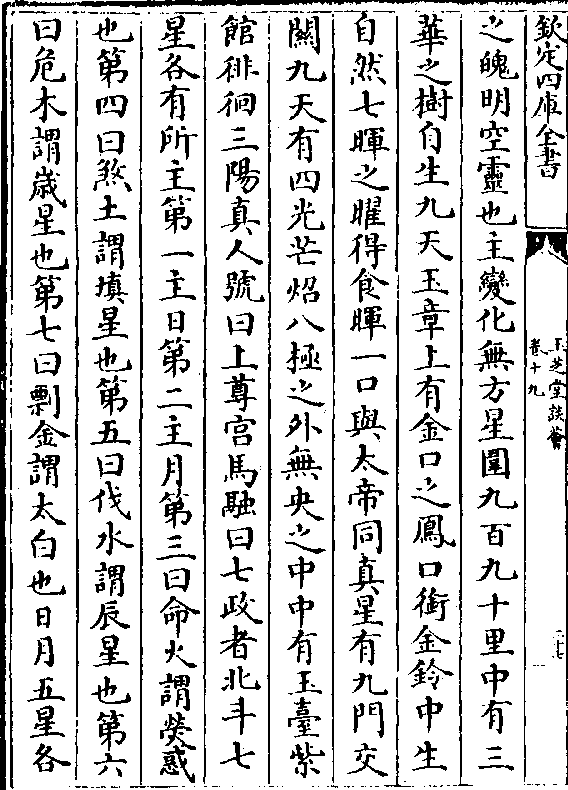 欽定四庫全書
玉芝堂談薈
卷十九
二十七
之魄明空靈也主變化無方星圍九百九十里中有三
華之樹自生九天玉章上有金口之鳳口銜金鈴中生
自然七暉之曜得食暉一口與太帝同真星有九門交
關九天有四光芒炤八極之外無央之中中有玉臺紫
館徘徊三陽真人號曰上尊宮馬融曰七政者北斗七
星各有所主第一主日第二主月第三曰命火謂熒惑
也第四曰煞土謂填星也第五曰伐水謂辰星也第六
曰危木謂歲星也第七曰剽金謂太白也日月五星各